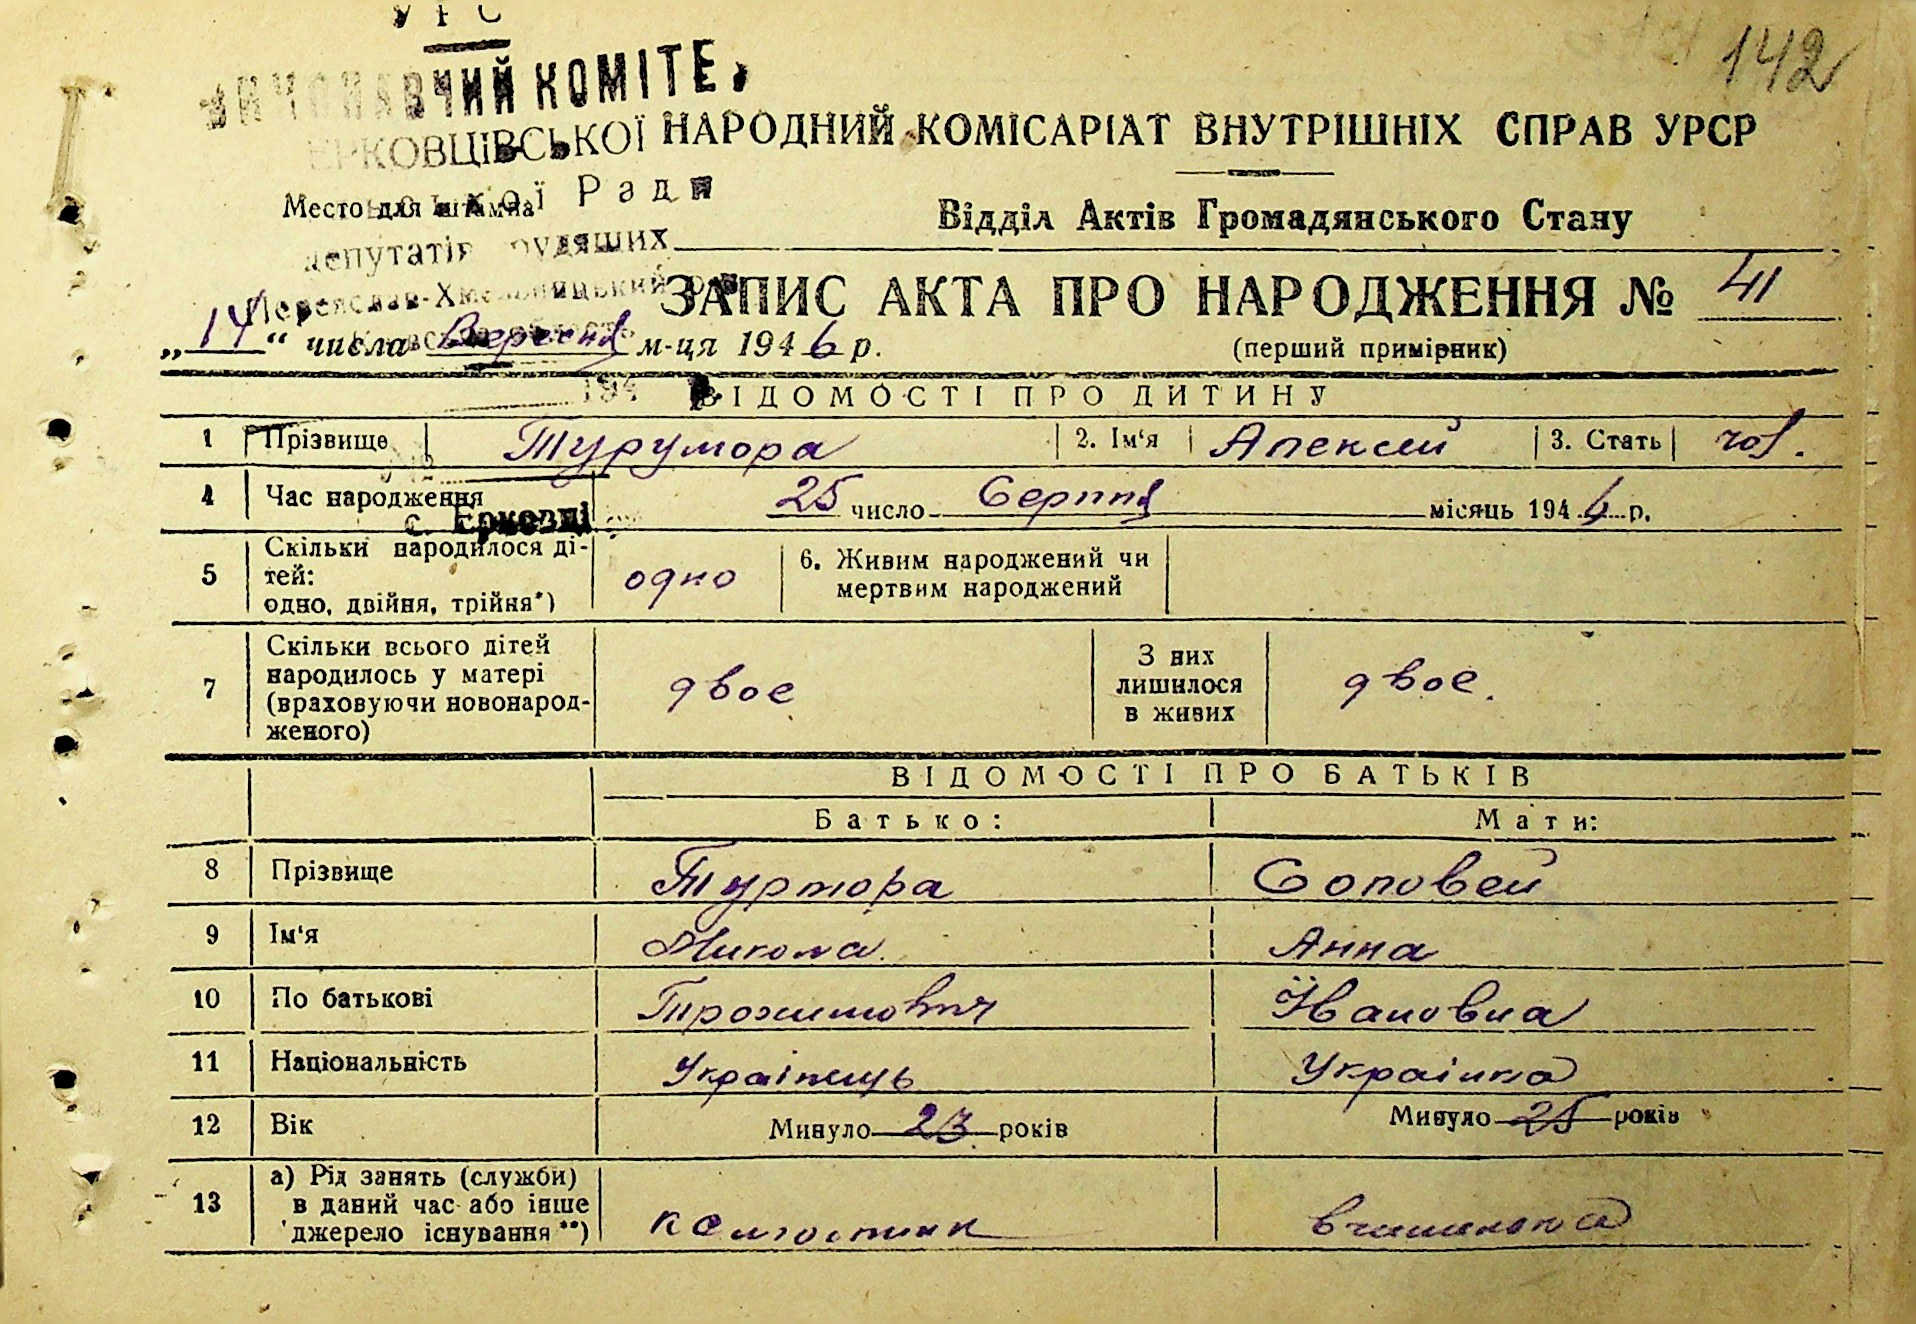 УРС
142
ВИКОНАВЧИЙ КОМІТЕ
ЕРКОВЦІВСЬКОЇ
НАРОДНИЙ КОМІСАРІАТ ВНУТРІШНІХ СПРАВ УРСР
Место для штампа
Ради
Відділ Актів Громадянського Стану
депутатів трудящих
Переяслав-Хмельницький
ЗАПИС АКТА ПРО НАРОДЖЕННЯ № 41
„14“ числа Вересня м-ця 1946 р.
(перший примірник)
194
ВІДОМОСТІ ПРО ДИТИНУ
1 Прізвище Турумора 2. Ім‘я Алексей 3. Стать чол.
4 Час народження 25 число Серпня місяць 1946 р.
с. Ерковці
5 Скільки народилося ді-
тей:
одно, двійня, трійня*) одно 6. Живим народжений чи
мертвим народжений
7 Скільки всього дітей
народилось у матері
(враховуючи новонарод-
женого) двое З них
лишилося
в живих двое.
ВІДОМОСТІ ПРО БАТЬКІВ
Батько: Мати:
8 Прізвище Туртора Соловей
9 Ім‘я Микола Анна
10 По батькові Трохимович Ївановна
11 Національність Українець Українка
12 Вік Минуло 23 років Минуло 25 років
13 а) Рід занять (служби)
в даний час або інше
джерело існування **) колгоспник вчителька